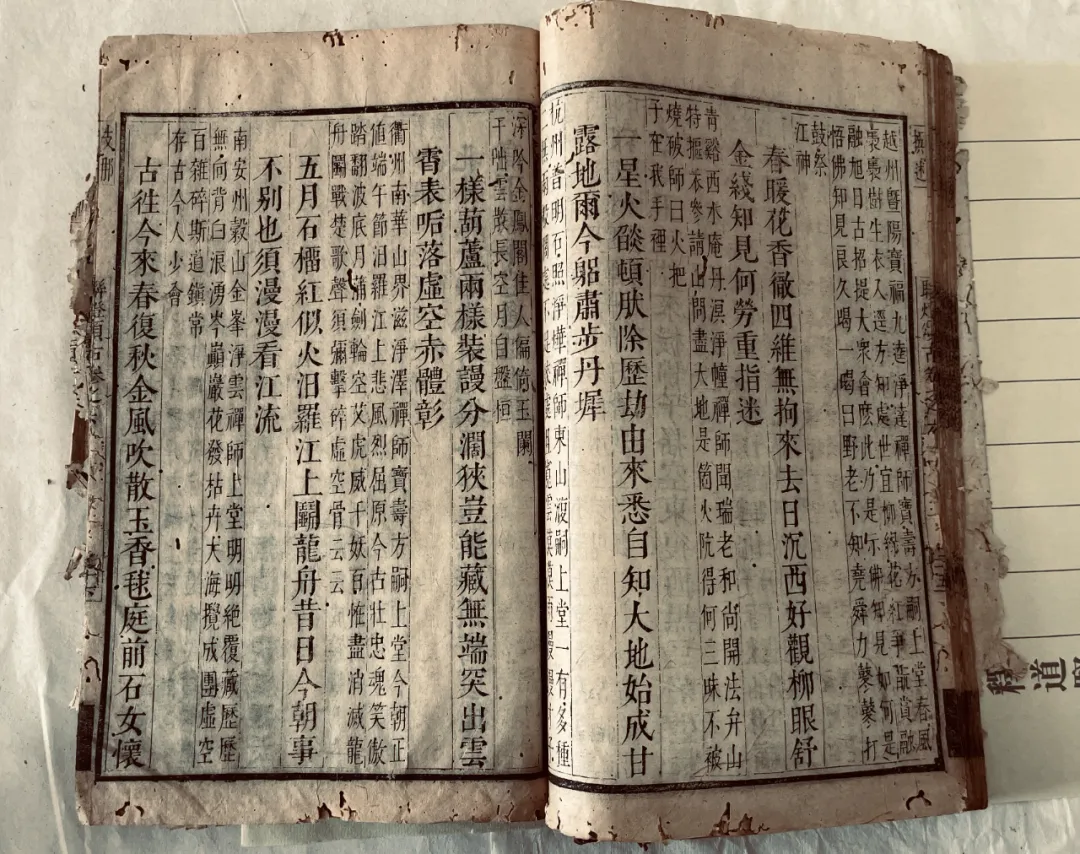 越州暨陽寶福九達淨達禪師寶壽方嗣上堂春風
裘裘樹生衣人選方知處世宜柳綠花紅爭龍賞融
融旭日古招提大衆會麽此乃是示佛知見如何是
悟佛知見良久喝一喝曰野老不知堯舜力鼕鼕打
鼓祭
江神
春暖花香徹四維無拘來去日沉西好觀柳眼舒
金綫知見何勞重指迷
青谿西水庵丹溟淨幢禪師聞瑞老和尚開法弁山
特摳叅參請山問盡大地是箇火阬得何三昧不被
燒破師曰火把
于在我手裡
一星火燄頓肰除歷劫由來悉自知大地始成甘
露地爾今躬肅步丹墀
杭州 明 照淨 禪師東山 嗣上堂一有多種
深吟金鳳閣佳人偏倚玉闌
干 雲散長空月自盤桓
一樣葫蘆兩樣裝謾分濶狹豈能藏無端突出雲
霄表垢落虛空赤體彰
衢州南華山界滋淨澤禪師寶壽方嗣上堂今朝正
值端午節汨羅江上悲風烈屈原今古壯忠魂笑傲
踏翻波底月蒲劍輪空艾虎威千妖百恠盡消滅龍
舟鬭戰楚歌聲須彌擊碎虛空骨云云
五月石榴紅似火汨羅江上鬭龍舟昔日今朝事
不别也須漫漫看江流
南安州穀山金峯淨雲禪師上堂明明絶覆藏歷歷
無向背白浪湧岑巔巖花發枯卉大海攪成團虛空
百雜碎斯道鎭常
存古今人少會
古徃今來春復秋金風吹散玉香毬庭前石女懷